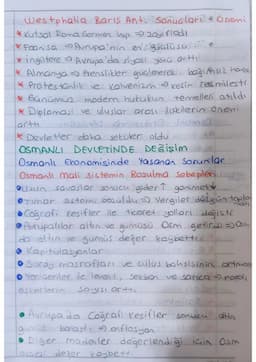 Westphalia Barış Ant. Sonuçları + Önemi
* Kutsal Roma Germen İmp → zayıfladı
* Fransa → Avrupa'nın en güçlüsü
* İngiltere → Avrupa'da siyasi gücü arttı
* Almanya → Prenslikler güçlenerek bağımsız
* Protestanlık ve Kalvenizm → kesin resmileşti
* Günümüz modern hukukun temelleri atıldı
* Diplomasi ve uluslar arası ilişkilerin önemi
arttı
* Devletler daha seküler oldu
OSMANLI DEVLETİNDE DEĞİŞİM
Osmanlı Ekonomisinde Yaşanan Sorunlar
Osmanlı Mali Sistemin Bozulma Sebepleri
• Uzun savaşlar sonucu gider ↑
• Tımar sistemi bozuldu → Vergiler
• Coğrafi keşifler ile ticaret yolları değişti
• Avrupalılar altın ve gümüşü Osm. getirdi →
da altın ve gümüş değer kaybetti
• Kapitülasyonlar
• Saray masrafları ve cülus bahşişinin artması
• Yeniçeriler ile levent, sekban ve sarıca →
askerlerin sayısı arttı.
• Avrupa'da Coğrafi keşifler sonucu altın
gümüş →enflasyon
• Diğer madenler değerlendiği için Osm
değer kaybetti